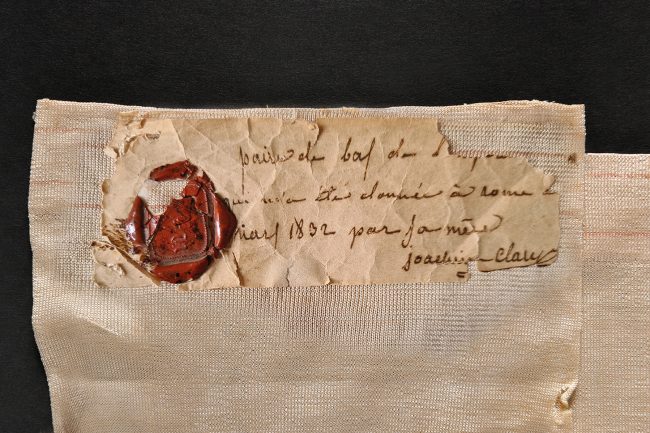 paire de bas de l'emp
qui m'a été donnée à rome
mars 1832 par sa mère
joachim Clary